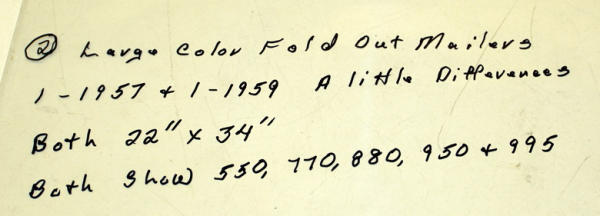 ② Large Color Fold Out Mailers
1-1957 + 1-1959 A little Differences
Both 22" x 34"
Both Show 550, 770, 880, 950 + 995